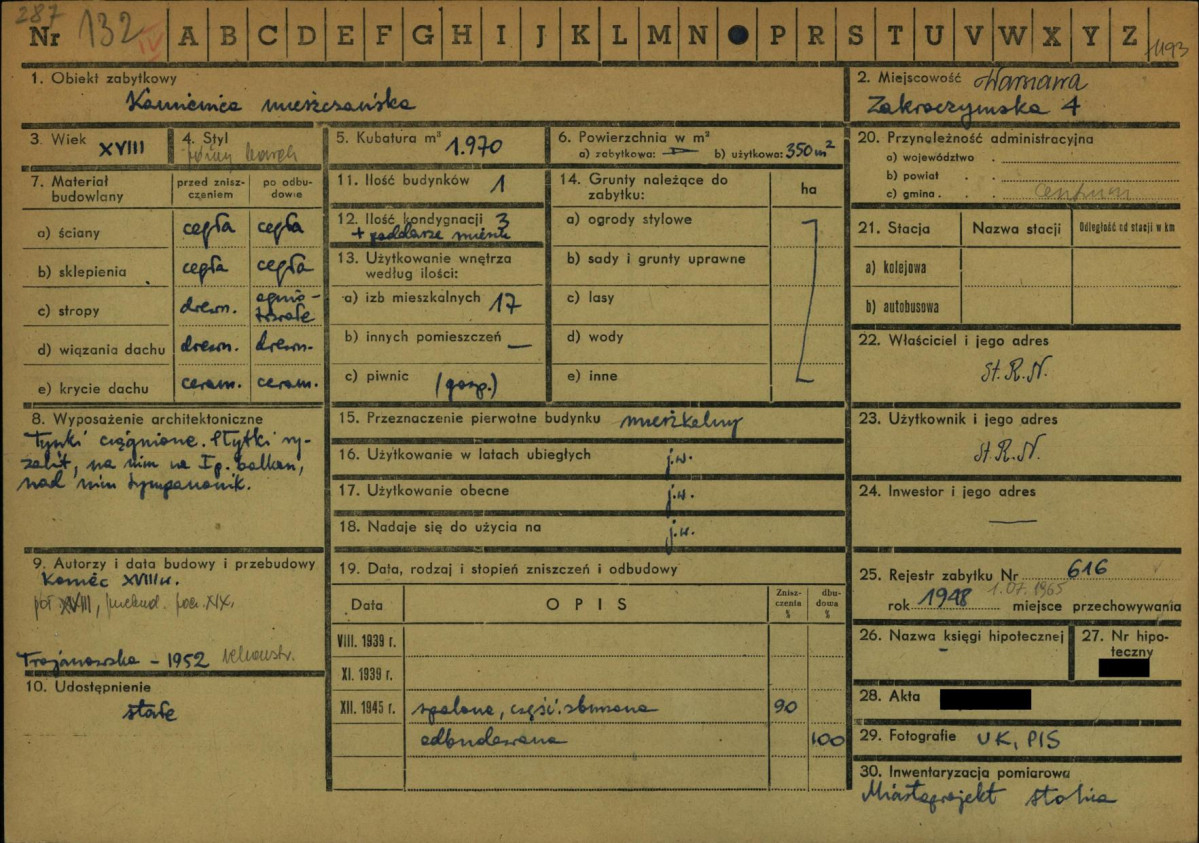 287
Nr 132 IV A B C D E F G H I J K L M N P R S T U V W X Y Z 1193
1. Obiekt zabytkowy
Kamienica mieszczańska
2. Miejscowość Warszawa
Zakroczymska 4
3. Wiek XVIII
4. Styl
późny barok
5. Kubatura m³ 1.970
6. Powierzchnia w m²
a) zabytkowa: b) użytkowa: 350 m²
7. Materiał budowlany
przed zniszczeniem
po odbudowie
a) ściany cegła cegła
b) sklepienia cegła cegła
c) stropy drewn. ognio-trwałe
d) wiązania dachu drewn. drewn.
e) krycie dachu ceram. ceram.
8. Wyposażenie architektoniczne
Tynki ciągnione. Płytki ry-
zalit, na nim na I p. balkon,
nad nim tympanonik.
9. Autorzy i data budowy i przebudowy
Koniec XVIII w.
poł XVIII, przebud. pocz. XIX.
Trojanowska – 1952 rekonstr.
10. Udostępnienie
stałe
11. Ilość budynków 1
12. Ilość kondygnacji 3
+ poddasze mieszk
13. Użytkowanie wnętrza
według ilości:
a) izb mieszkalnych 17
b) innych pomieszczeń —
c) piwnic (gosp.)
14. Grunty należące do
zabytku:
ha
a) ogrody stylowe
b) sady i grunty uprawne
c) lasy
d) wody
e) inne
15. Przeznaczenie pierwotne budynku mieszkalny
16. Użytkowanie w latach ubiegłych j.w.
17. Użytkowanie obecne j.w.
18. Nadaje się do użycia na j.w.
19. Data, rodzaj i stopień zniszczeń i odbudowy
Data OPIS Znisz-czenia % dbu-dowa %
VIII. 1939 r.
XI. 1939 r.
XII. 1945 r. spalona, część. zburzona 90
odbudowana 100
20. Przynależność administracyjna
a) województwo
b) powiat
c) gmina Centrum
21. Stacja Nazwa stacji Odległość od stacji w km
a) kolejowa
b) autobusowa
22. Właściciel i jego adres
St. R. N.
23. Użytkownik i jego adres
St. R. N.
24. Inwestor i jego adres
—
25. Rejestr zabytku Nr 616
1.07.1965
rok 1948 miejsce przechowywania
26. Nazwa księgi hipotecznej
-
27. Nr hipo-
teczny
28. Akta
29. Fotografie UK, PIS
30. Inwentaryzacja pomiarowa
Miastoprojekt Stolica